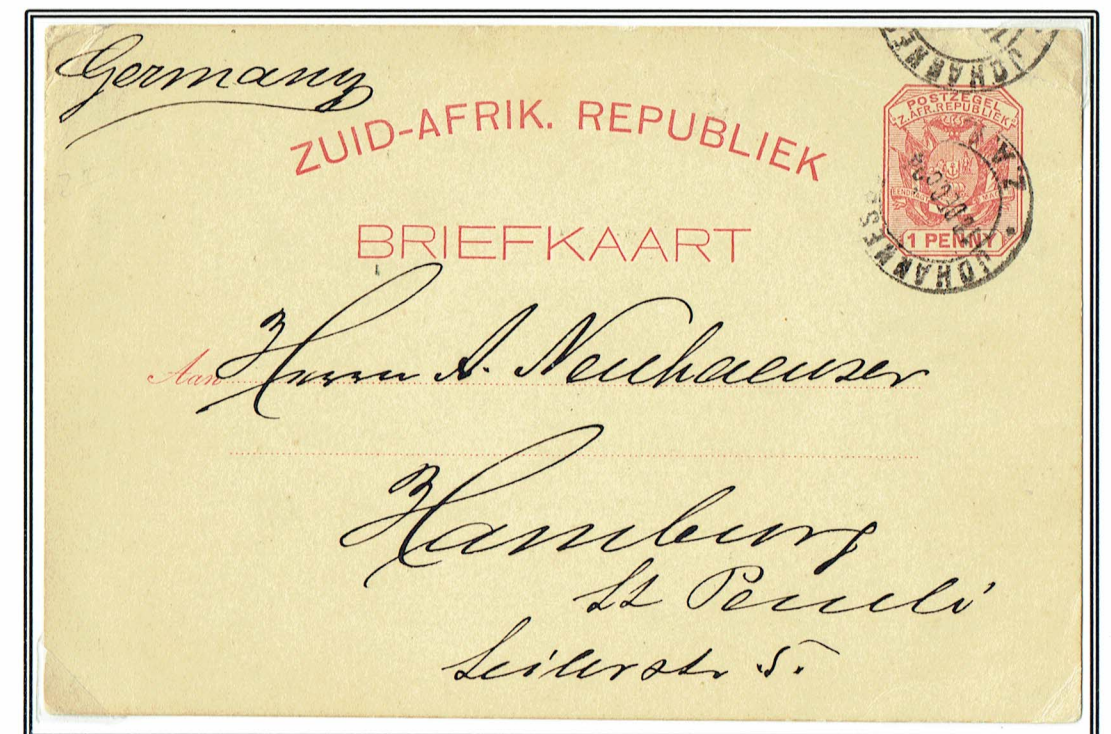 Germany
ZUID-AFRIK. REPUBLIEK
BRIEFKAART
POSTZEGEL
Z. AFR. REPUBLIEK
EENDRAGT MAAKT
1 PENNY
JOHANNES
Z.A.R.
JOHANNESB
Aan Herrn A. Neuhaeuser
Hamburg
St Pauli
Seilerstr 5.